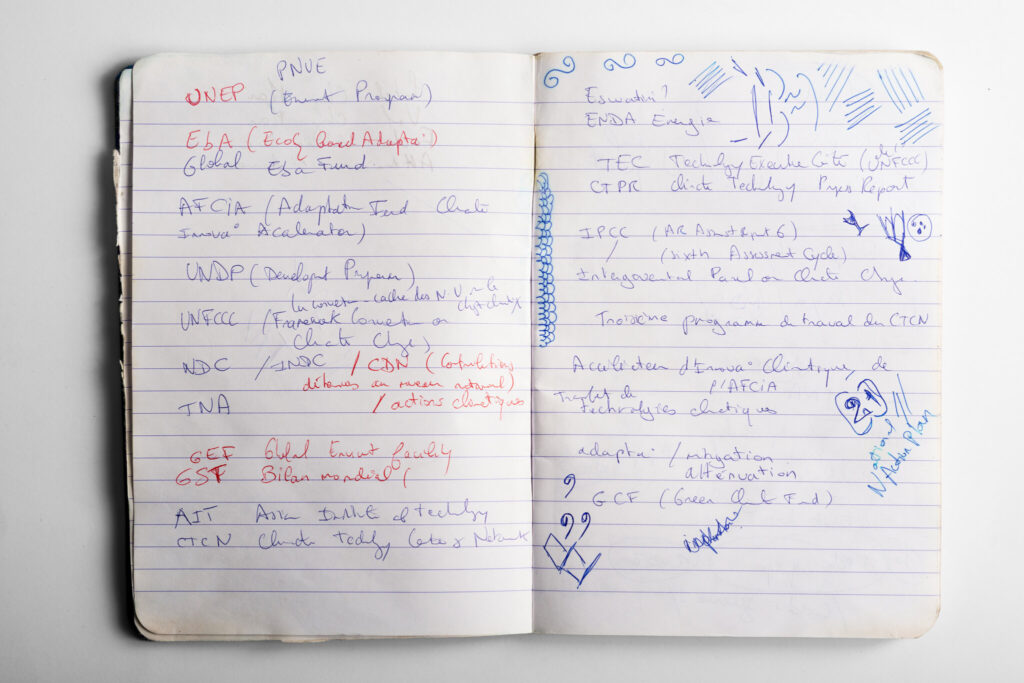 PNUE
UNEP (Envmt Program)
EbA (Ecosy based Adapta°)
Global Eba Fund
AFCIA (Adaptatn Fund Climate
Innova° Accelerator)
UNDP (Developmt Programm)
La convention-cadre des N.U. sur le
UNFCCC (Framework Convention on
Climate Change)
NDC / INDC / CDN (Contributions
déterminées au niveau national)
TNA / actions climatiques
GEF Global Envmt facility
GST Bilan mondial (
AIT Asian Institute of technology
CTCN Climate Technology Centre & Network
Eswatini?
ENDA Energie
TEC Technology Executive Cttee (de l' UNFCCC)
CTPR Climate Technology Progress Report
IPCC (AR Assmt Report 6)
/ (sixth Assessment Cycle)
Intergovernmental Panel on Climate Change
Troisième programme de travail du CTCN
Accélérateur d'Innova° Climatique, de
l'AFCIA
Transfert de
technologies climatiques
21
National
Action Plan
adapta° / mitigation
atténuation
GCF (Green Climate Fund)